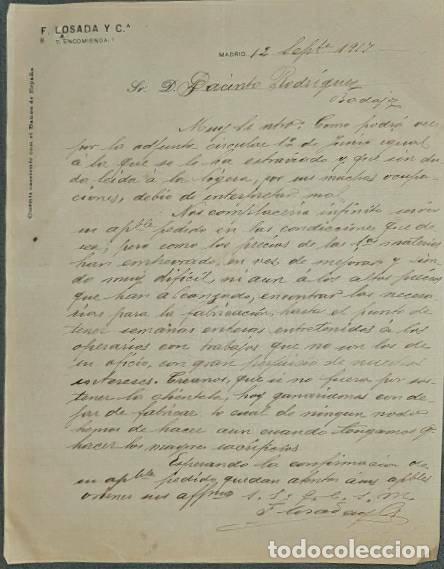 F. LOSADA Y C.ª
ENCOMIENDA,
Cuenta corriente con el Banco de España
MADRID, 12 Sepbre 1917
Sr. D. Jacinto Rodríguez
Badajoz
Muy Sr. ntro: Como podrá ver
por la adjunta circular 1º de Junio igual
á la que se le ha extraviado y que sin du
da leida á la ligera, por sus muchas ocupa
ciones, debió de interpretar mal
Nos complacería infinito servir
su apble pedido en las condiciones que de
sea, pero como los precios de las 1as materias
han empeorado, en vez de mejorar y sien
do muy difícil, ni aun á los altos precios
que han alcanzado, encontrar las necesa
rias para la fabricación, hasta el punto de
tener semanas enteras entretenidos a los
operarios con trabajos que no son los de
su oficio, con gran perjuicio de nuestros
intereses. Creanos, que si no fuera por sos
tener la clientela, hoy ganariamos con de
jar de fabricar lo cual de ningun modo
hemos de hacer aun cuando tengamos q.
hacer los mayores sacrificios.
Esperando la confirmación de
su apble pedido quedan atentos a sus apbles
ordenes sus affmos s. s. q. b. s. m.
F Losada y Cª
todocoleccion.net